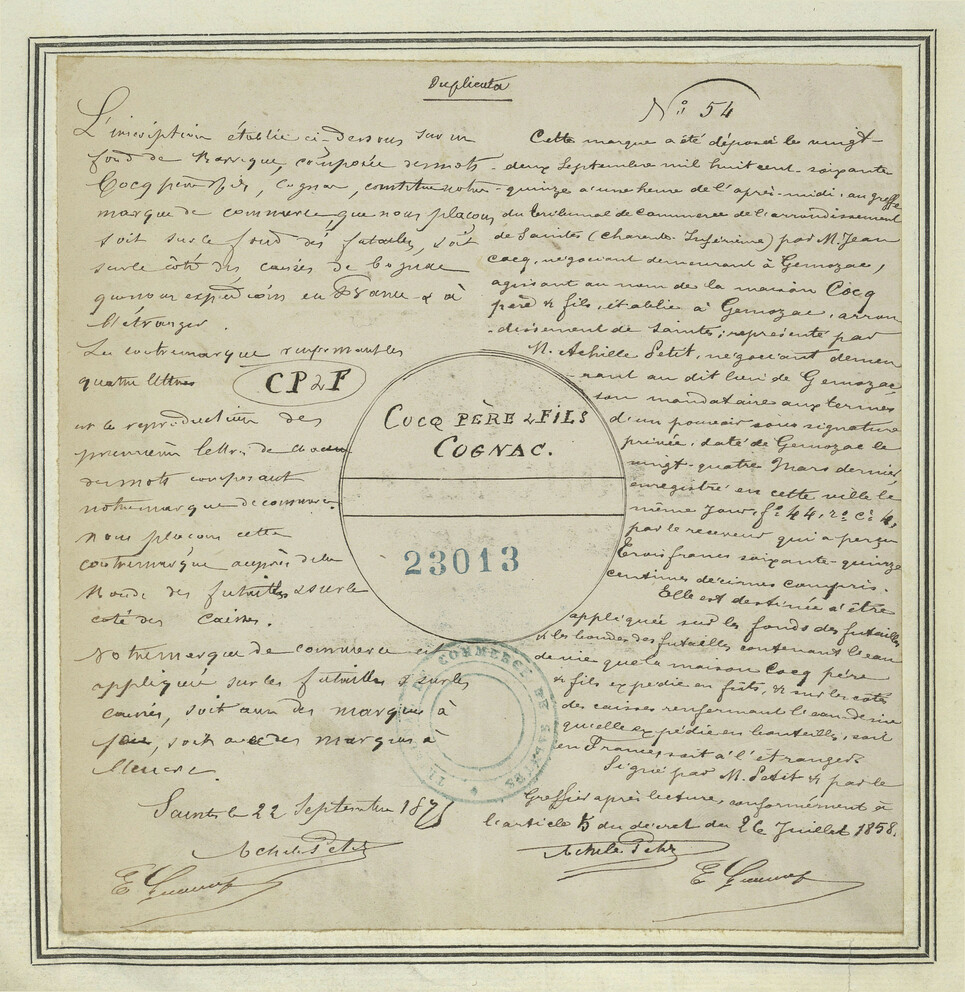 Duplicata
L'inscription établie ci-dessous sur un
fond de Barrique, composée des mots
Cocq père & fils, Cognac, constitue notre
marque de commerce que nous plaçons
soit sur le fond des futailles, soit
sur le côté des caisses de Cognac
que nous expédions en France & à
l'étranger.
La contremarque renfermant les
quatre lettres CP&F
est la reproduction des
premières lettres de chacun
des mots composant
notre marque de commerce.
Nous plaçons cette
contremarque auprès de la
Bonde des futailles & sur le
coté des Caisses.
Notre marque de commerce est
appliquée sur les futailles & sur les
caisses, soit avec des marques à
feu, soit avec des marques à
l'encre.
Saintes le 22 Septembre 1875
Achille Petit
N° 54
Cette marque a été déposée le vingt-
deux Septembre mil huit cent soixante
quinze à une heure de l'après-midi, au greffe
du tribunal de Commerce de l'arrondissement
de Saintes (Charente Inférieure) par M. Jean
Cocq, négociant demeurant à Gemozac,
agissant au nom de la maison Cocq
père & fils, établie à Gemozac, arron-
-dissement de Saintes; représenté par
M. Achille Petit, négociant demeu
-rant au dit lieu de Gemozac
son mandataire aux termes
d'un pouvoir sous signature
privée, daté de Gemozac le
vingt-quatre Mars dernier
enregistré en cette ville le
même jour, f° 44, r° c° 4,
par le receveur qui a perçu
trois francs soixante-quinze
centimes décimes compris.
Elle est destinée à être
appliquée sur les fonds des futailles
& les bondes des futailles contenant l'eau
de vie que la maison Cocq père
& fils expédie en fûts, & sur les cotés
des caisses renfermant l'eau de vie
qu'elle expédie en bouteilles, soit
en France, soit à l'étranger.
Signé par M. Petit & par le
Greffier après lecture, conformément à
l'article 5 du décret du 26 Juillet 1858.
Achille Petit
COCQ PÈRE & FILS
COGNAC.
23013
TRIBUNAL DE COMMERCE DE SAINTES